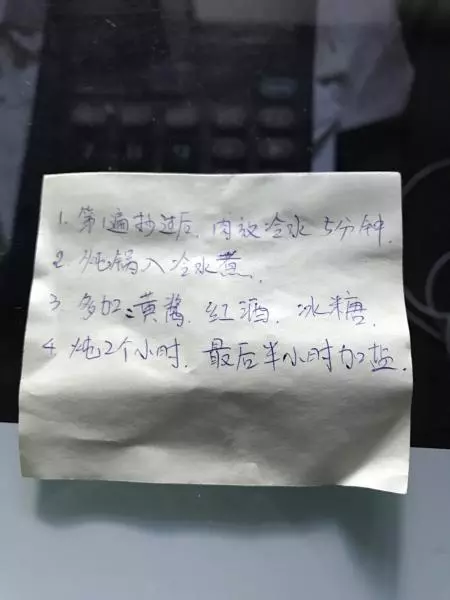 1. 第1遍抄过后, 肉放冷水 5分钟.
2. 炖锅入冷水煮.
3. 多加: 黄酱. 红酒. 冰糖.
4. 炖2个小时. 最后半小时加盐.